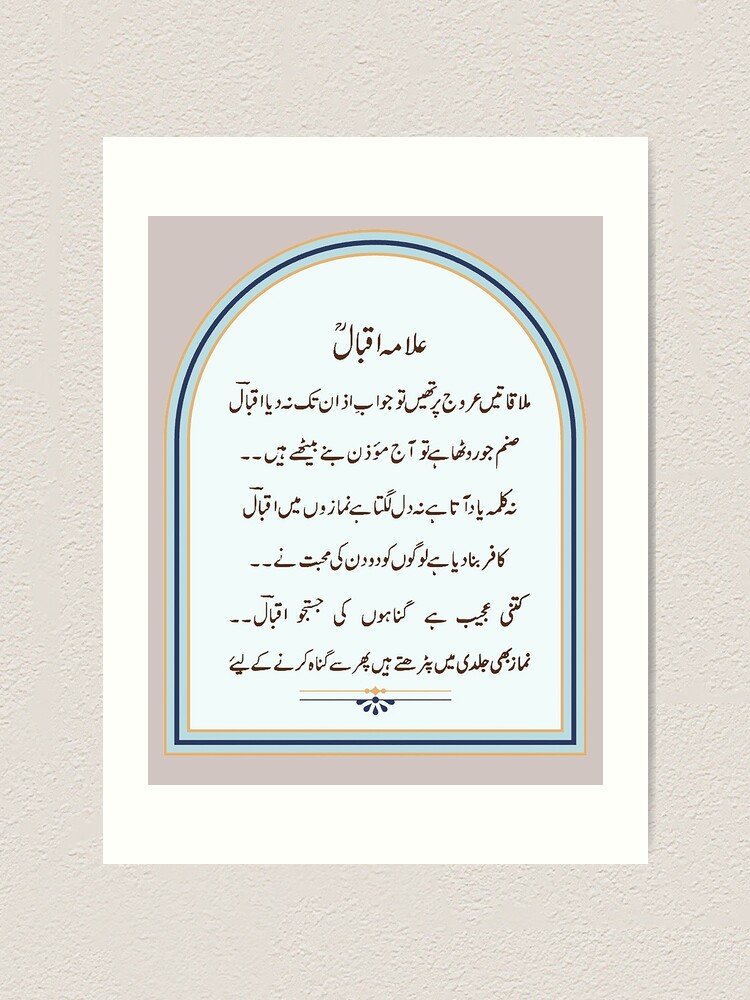 علامہ اقبالؒ
ملاقاتیں عروج پر تھیں تو جوابِ اذان تک نہ دیا اقبالؔ
صنم جو روٹھا ہے تو آج مؤذن بنے بیٹھے ہیں ۔۔
نہ کلمہ یاد آتا ہے نہ دل لگتا ہے نمازوں میں اقبالؔ
کافر بنا دیا ہے لوگوں کو دو دن کی محبت نے ۔۔
کتنی عجیب ہے گناہوں کی جستجو اقبالؔ ۔۔
نماز بھی جلدی میں پڑھتے ہیں پھر سے گناہ کرنے کے لیئے